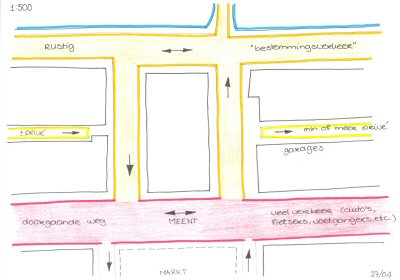 1:500
RUSTIG
"bestemmingsverkeer"
± PRIVÉ
min of meer PRIVÉ
garages
doorgaande weg
MEENT
veel verkeer (auto's,
fietsers, voetgangers, etc.)
MARKT